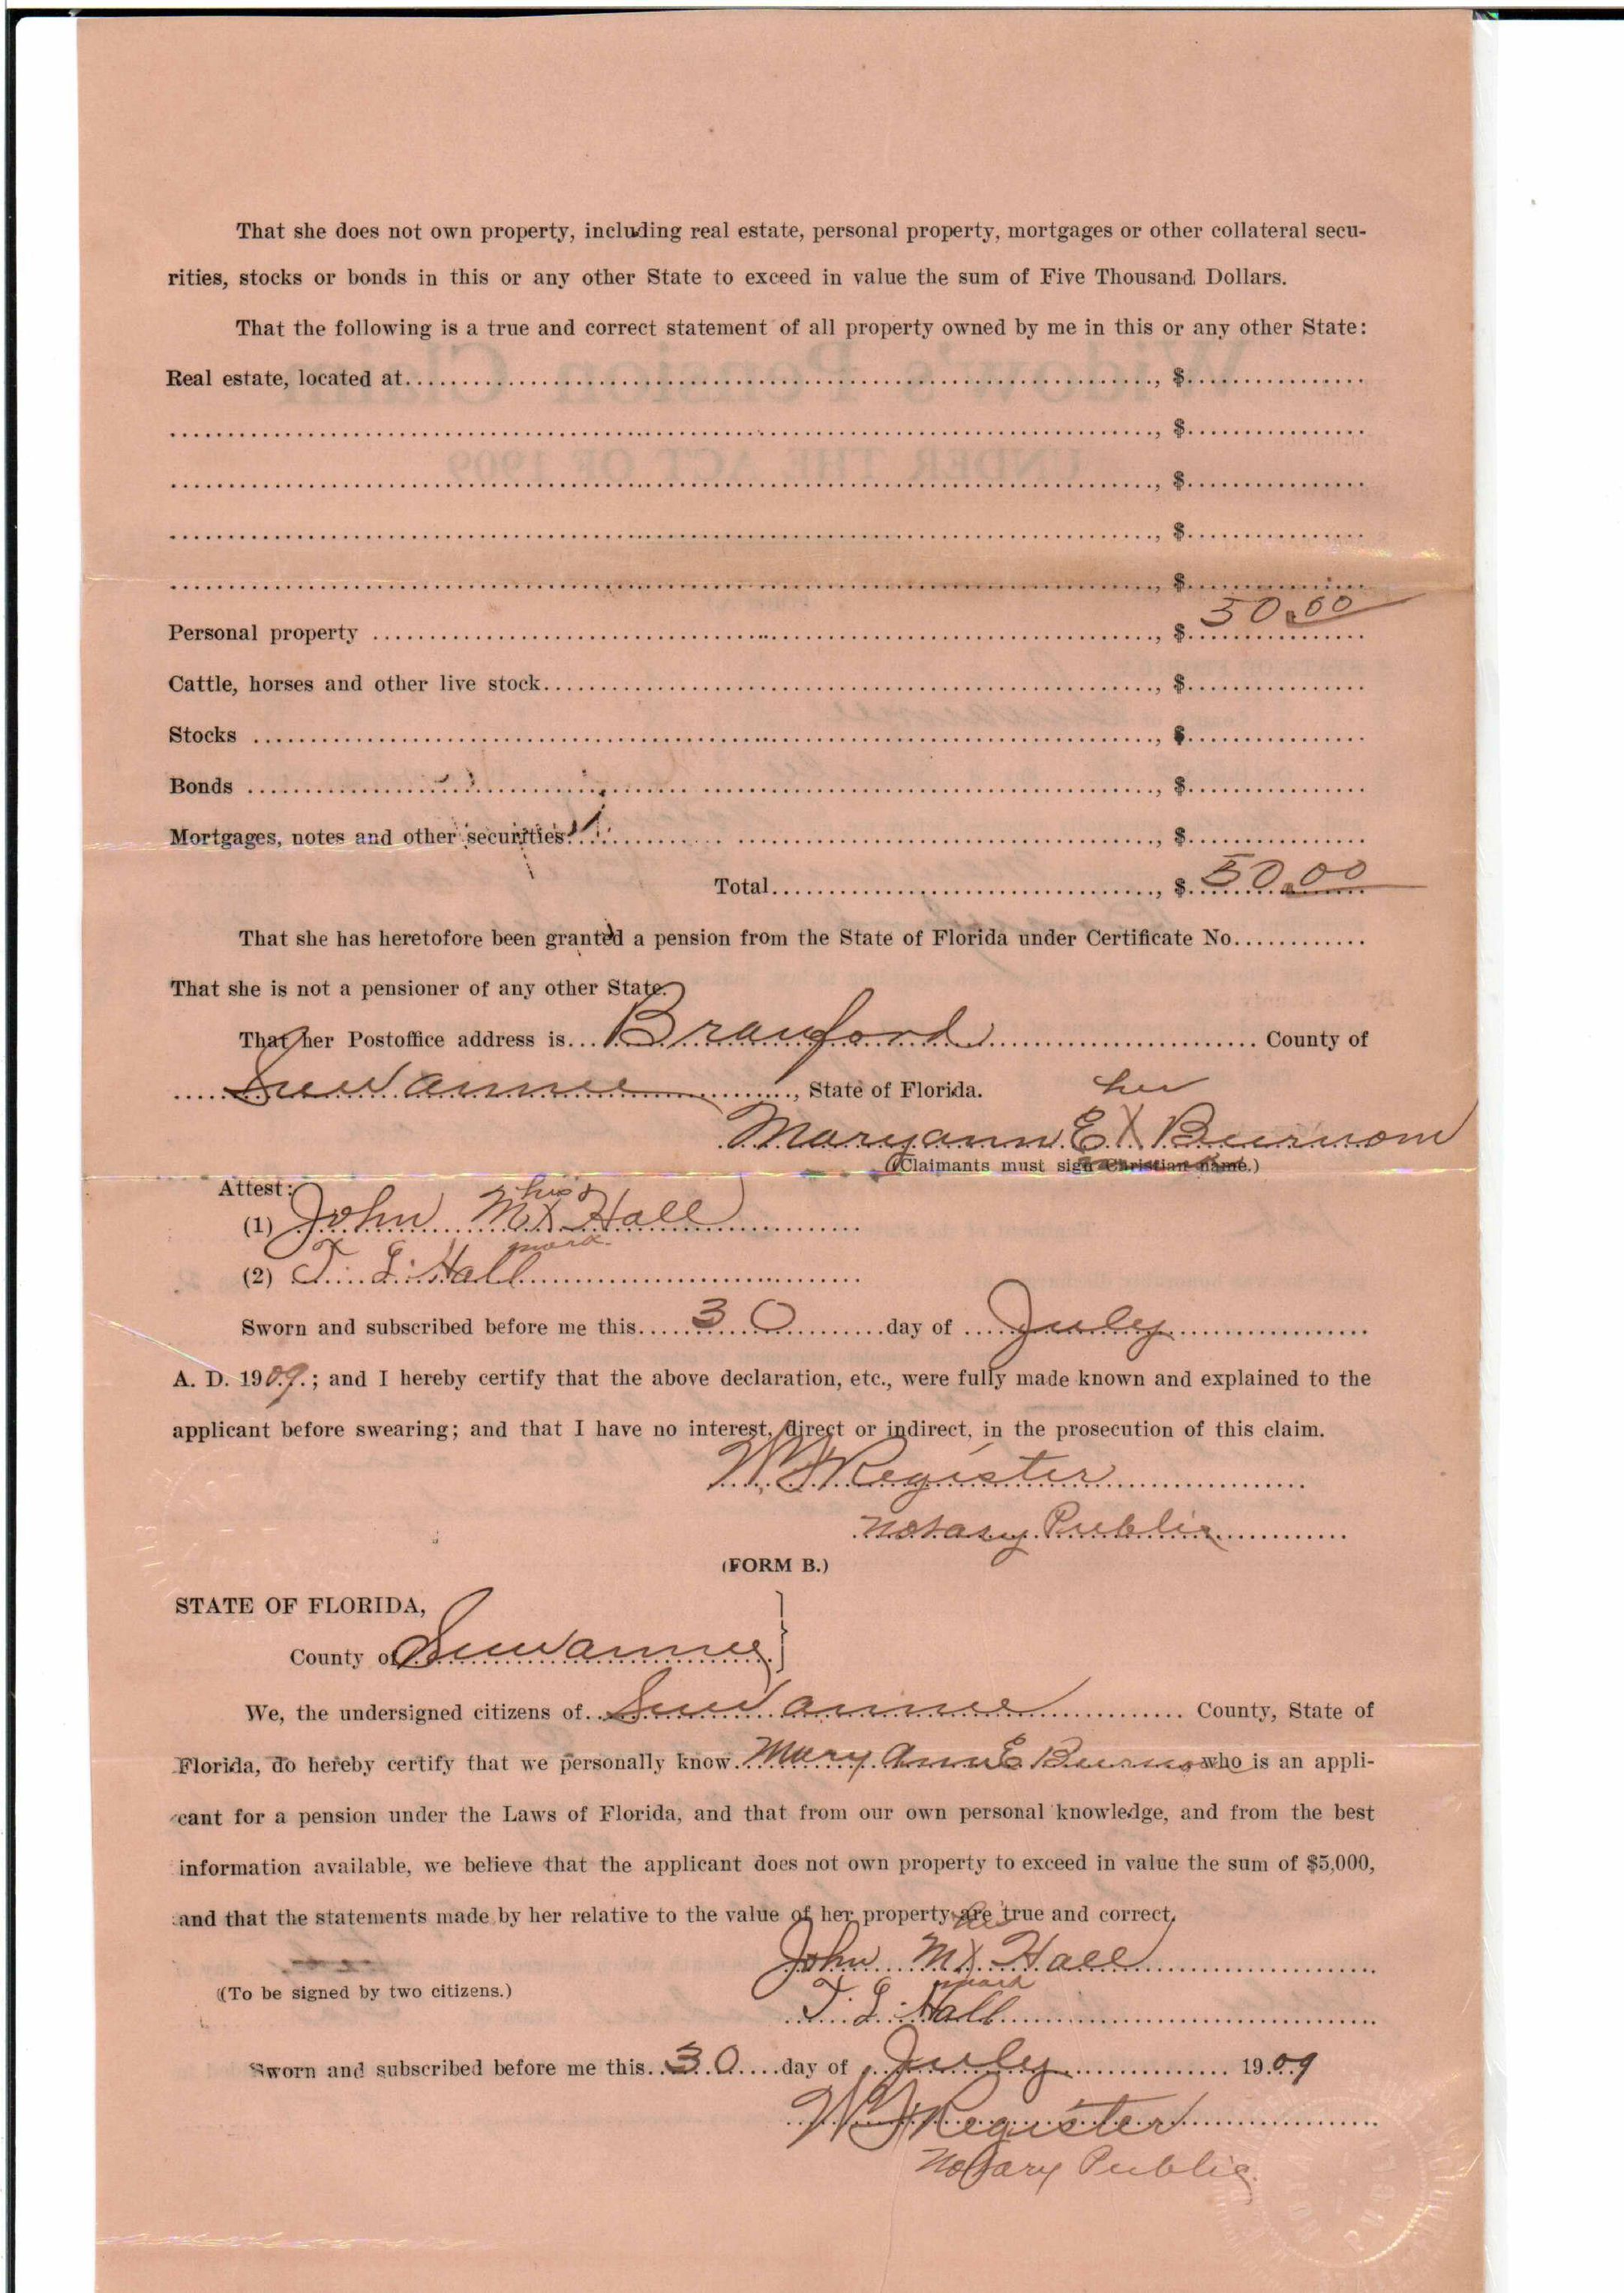 That she does not own property, including real estate, personal property, mortgages or other collateral secu-
rities, stocks or bonds in this or any other State to exceed in value the sum of Five Thousand Dollars.
That the following is a true and correct statement of all property owned by me in this or any other State:
Real estate, located at......, $......
......, $......
......, $......
......, $......
......, $......
Personal property ......, $ 50.00
Cattle, horses and other live stock......, $......
Stocks ......, $......
Bonds ......, $......
Mortgages, notes and other securities......, $......
Total......, $ 50.00
That she has heretofore been granted a pension from the State of Florida under Certificate No......
That she is not a pensioner of any other State.
That her Postoffice address is... Branford ...... County of
..... Suwannee ......, State of Florida.
her
Maryann E X Burnom
(Claimants must sign Christian name.)
Attest:
his
(1) John M X Hall
mark
(2) T. L. Hall
Sworn and subscribed before me this..... 30 ......day of ..... July ......
A. D. 1909.; and I hereby certify that the above declaration, etc., were fully made known and explained to the
applicant before swearing; and that I have no interest, direct or indirect, in the prosecution of this claim.
Register
Notary Public
(FORM B.)
STATE OF FLORIDA,
County of Suwannee
We, the undersigned citizens of.. Suwannee ...... County, State of
Florida, do hereby certify that we personally know. Mary Ann E Burnom who is an appli-
cant for a pension under the Laws of Florida, and that from our own personal knowledge, and from the best
information available, we believe that the applicant does not own property to exceed in value the sum of $5,000,
and that the statements made by her relative to the value of her property are true and correct.
his
John M X Hall
mark
(To be signed by two citizens.)
T. L. Hall
Sworn and subscribed before me this.. 30 ....day of July ...... 1909
Register
Notary Public